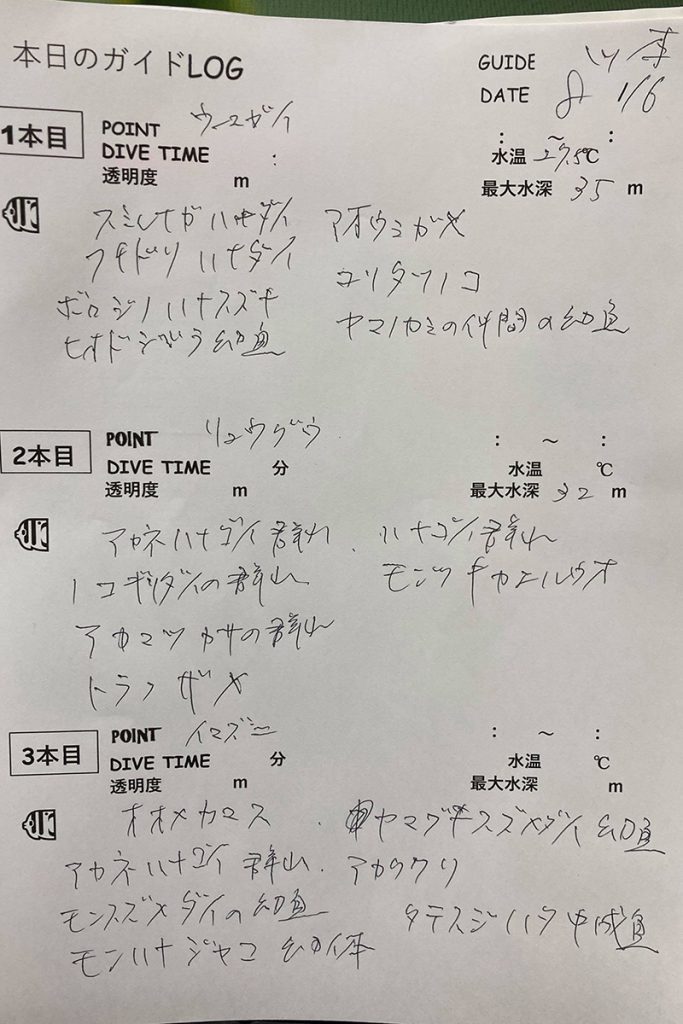 本日のガイドLOG
GUIDE 川本
DATE 8 1/6
1本目
POINT ウーマガイ
DIVE TIME :
透明度 m
: ~ :
水温 27.5℃
最大水深 35 m
スミレナガハナダイ
フチドリハナダイ
ボロジノハナスズキ
ヒオドシベラ幼魚
アオウミガメ
ユリタツノコ
ヤマノカミの仲間の幼魚
2本目
POINT リュウグウ
DIVE TIME 分
透明度 m
: ~ :
水温 ℃
最大水深 32 m
アカネハナゴイ群れ
ノコギリダイの群れ
アカマツカサの群れ
トラフザメ
ハナゴイ群れ
モンツキカエルウオ
3本目
POINT イマズニー
DIVE TIME 分
透明度 m
: ~ :
水温 ℃
最大水深 m
オオメカマス
アカネハナゴイ群れ
モンスズメダイの幼魚
モンハナジャコ 幼体
ヤマブキスズメダイ幼魚
アカククリ
タテスジハタ中成魚